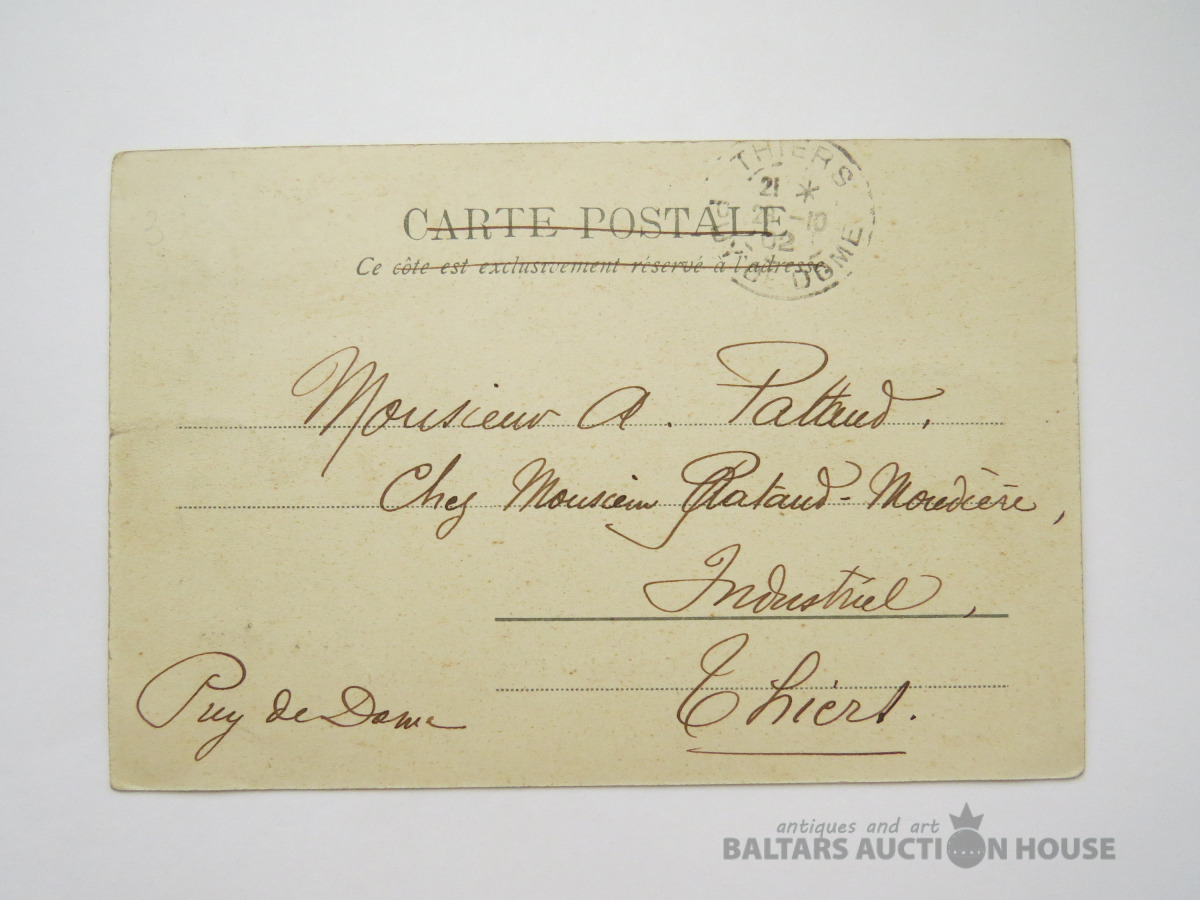 CARTE POSTALE
Ce côté est exclusivement réservé à l'adresse
THIERS
21 *
-10
02
PUY-DE-DOME
Monsieur A. Pataud,
Chez Monsieur Pataud-Moudière,
Industriel,
Thiers.
Puy de Dome
antiques and art
BALTARS AUCTION HOUSE